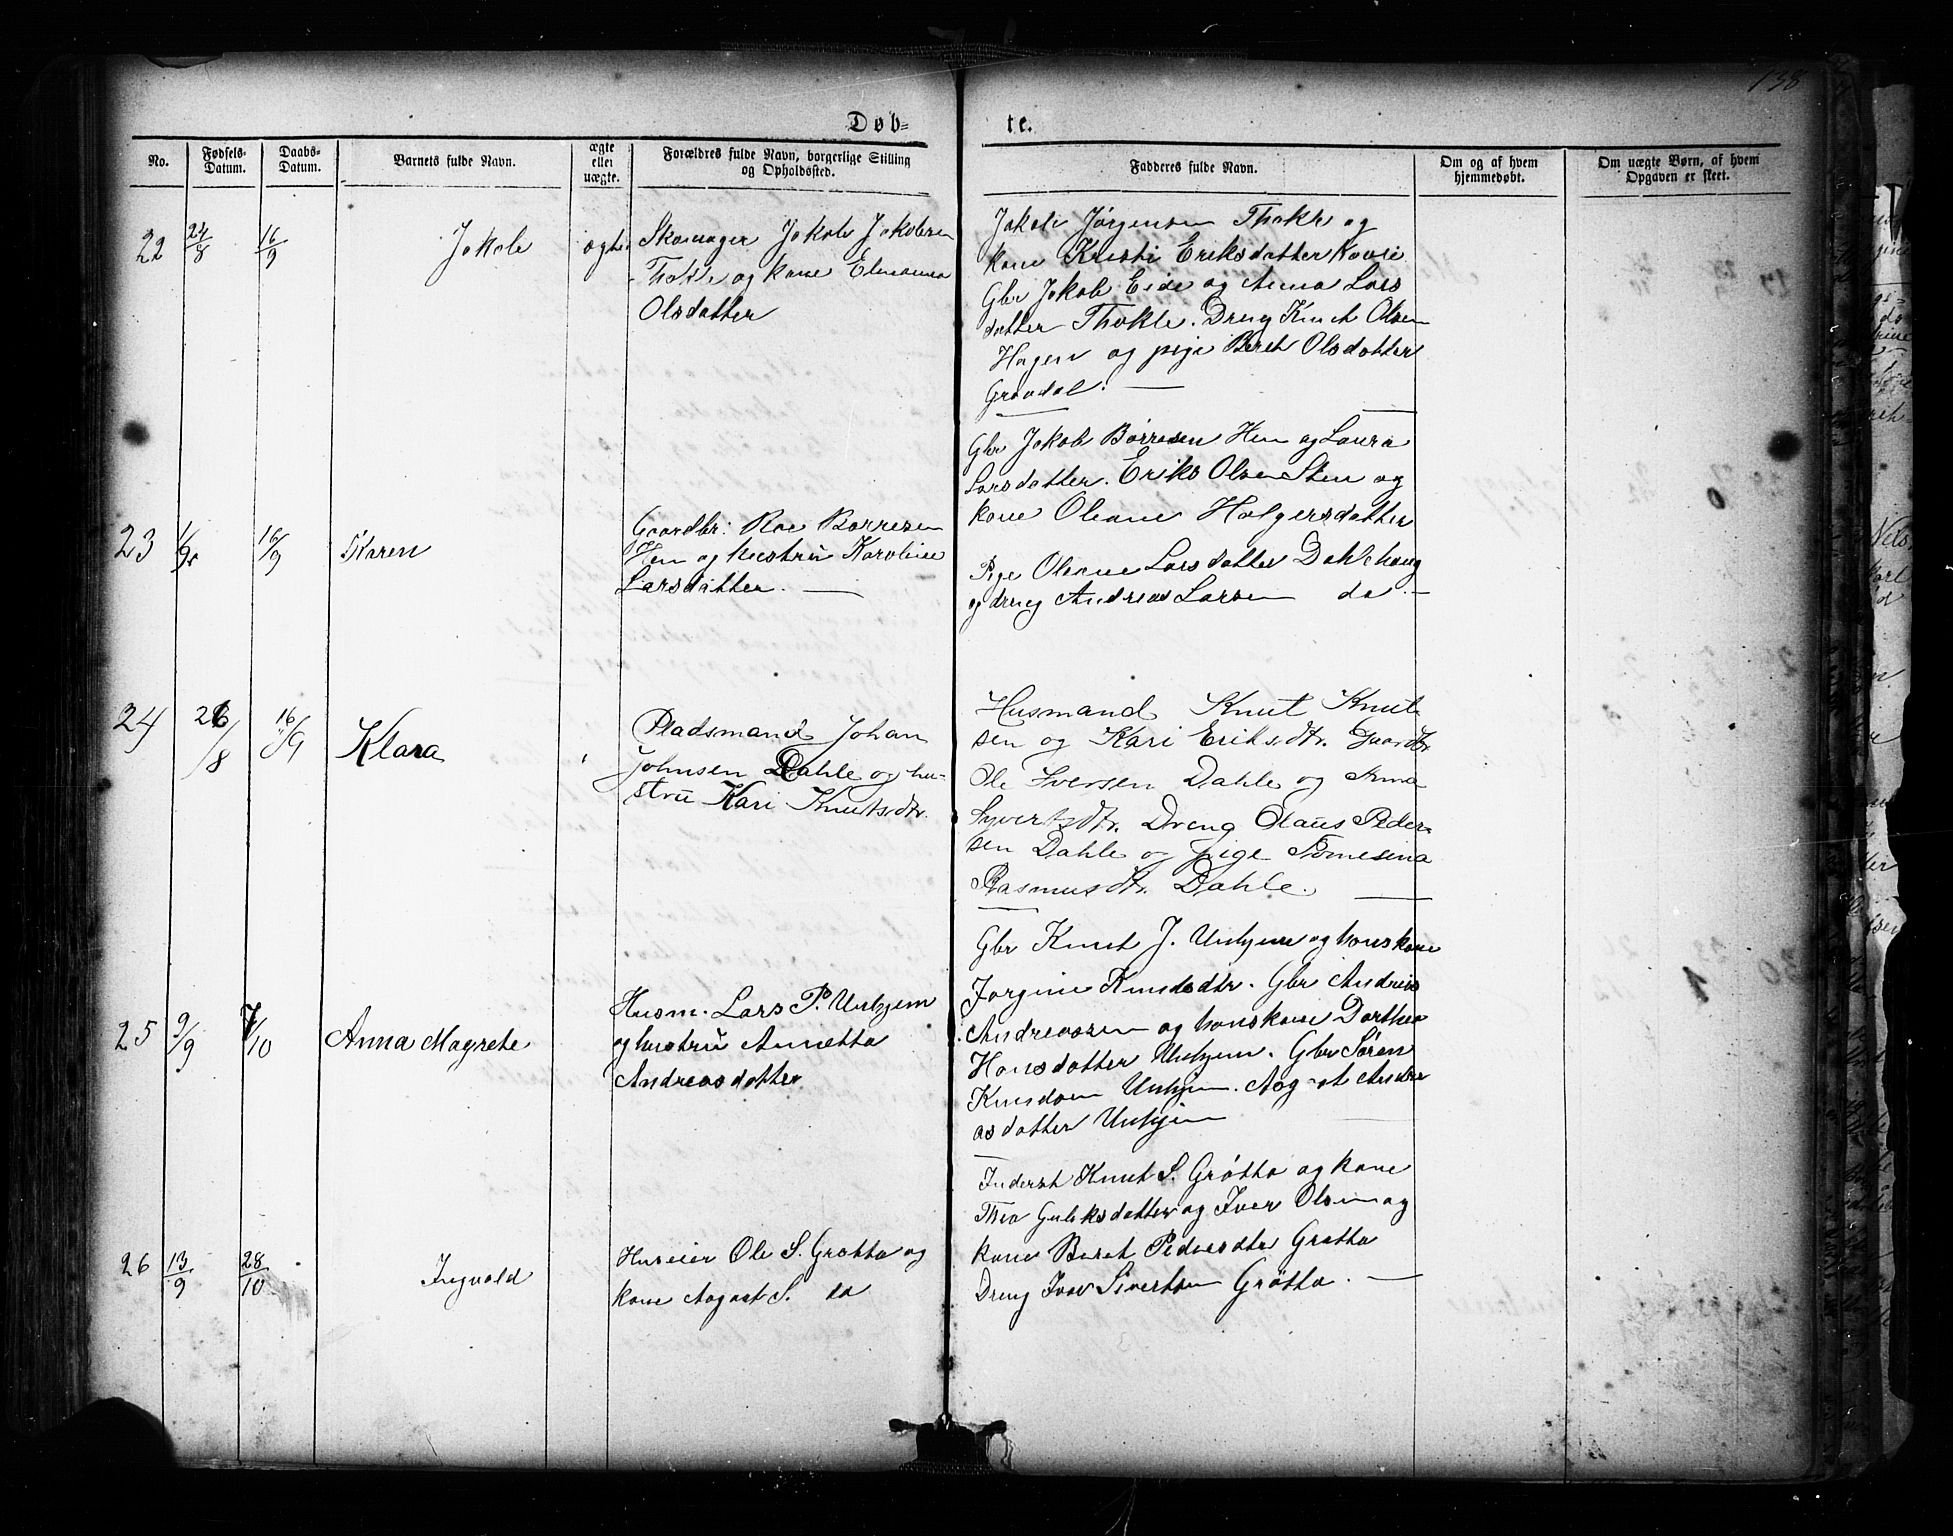 138
Døb-
te.
No.
Fødsels-
Datum.
Daabs-
Datum.
Barnets fulde Navn.
ægte
eller
uægte.
Forældres fulde Navn, borgerlige Stilling
og Opholdssted.
Fadderes fulde Navn.
Om og af hvem
hjemmedøbt.
Om uægte Børn, af hvem
Opgaven er skeet.
22 24/8 16/9 Jakob ægte
Skomager Jakob Jakobsen
Thokle og kone
Olsdatter
Jakob Jørgensen Thokle og
kone Kristi Eriksdatter
Gbr Jakob Eide og Anna Lars
datter Thokle. Dreng Knut Olsen
Hagen og pige Beret Olsdatter
Grøvdal.
23 1/9 16/9 Karen
Gaardbr. Roe Børresen
Hen og hustru Karoline
Larsdatter.
Gbr Jakob Børresen Hen og Laura
Larsdatter. Eriks Olsen Sten og
kone Oleane Holgersdatter
Pige Oleane Larsdatter Dahlehaug
og dreng Andreas Larsen do.
24 26/8 16/9 Klara
Pladsmand Johan
Johnsen Dahle og hu-
stru Kari Knutsdtr.
Husmand Knut Knut
sen og Kari Eriksdtr. Gaardbr.
Ole Iversen Dahle og Anna
Syvertsdtr. Dreng Olaus Peder-
sen Dahle og pige Tomesina
Rasmusdtr. Dahle.
25 9/9 7/10 Anna Magrete
Husm. Lars P. Unhjem
og hustru Annetta
Andreasdatter
Gbr Knut J. Unhjem og hans kone
Jorgine Knudsdtr. Gbr Andreas
Andreassen og hans kone Dorthea
Hansdatter Unhjem. Gbr Søren
Knudsen Unhjem. Andre
asdatter Unhjem
26 13/9 28/10 Ingvald
Huseier Ole S. Grøtta og
kone Aagaat S. do
Inderst Knut S. Grøtta og kone
Thea Guleksdatter og Iver Olsen og
kone Beret Pedersdtr Grøtta
Dreng Iver Sivertsen Grøtta.